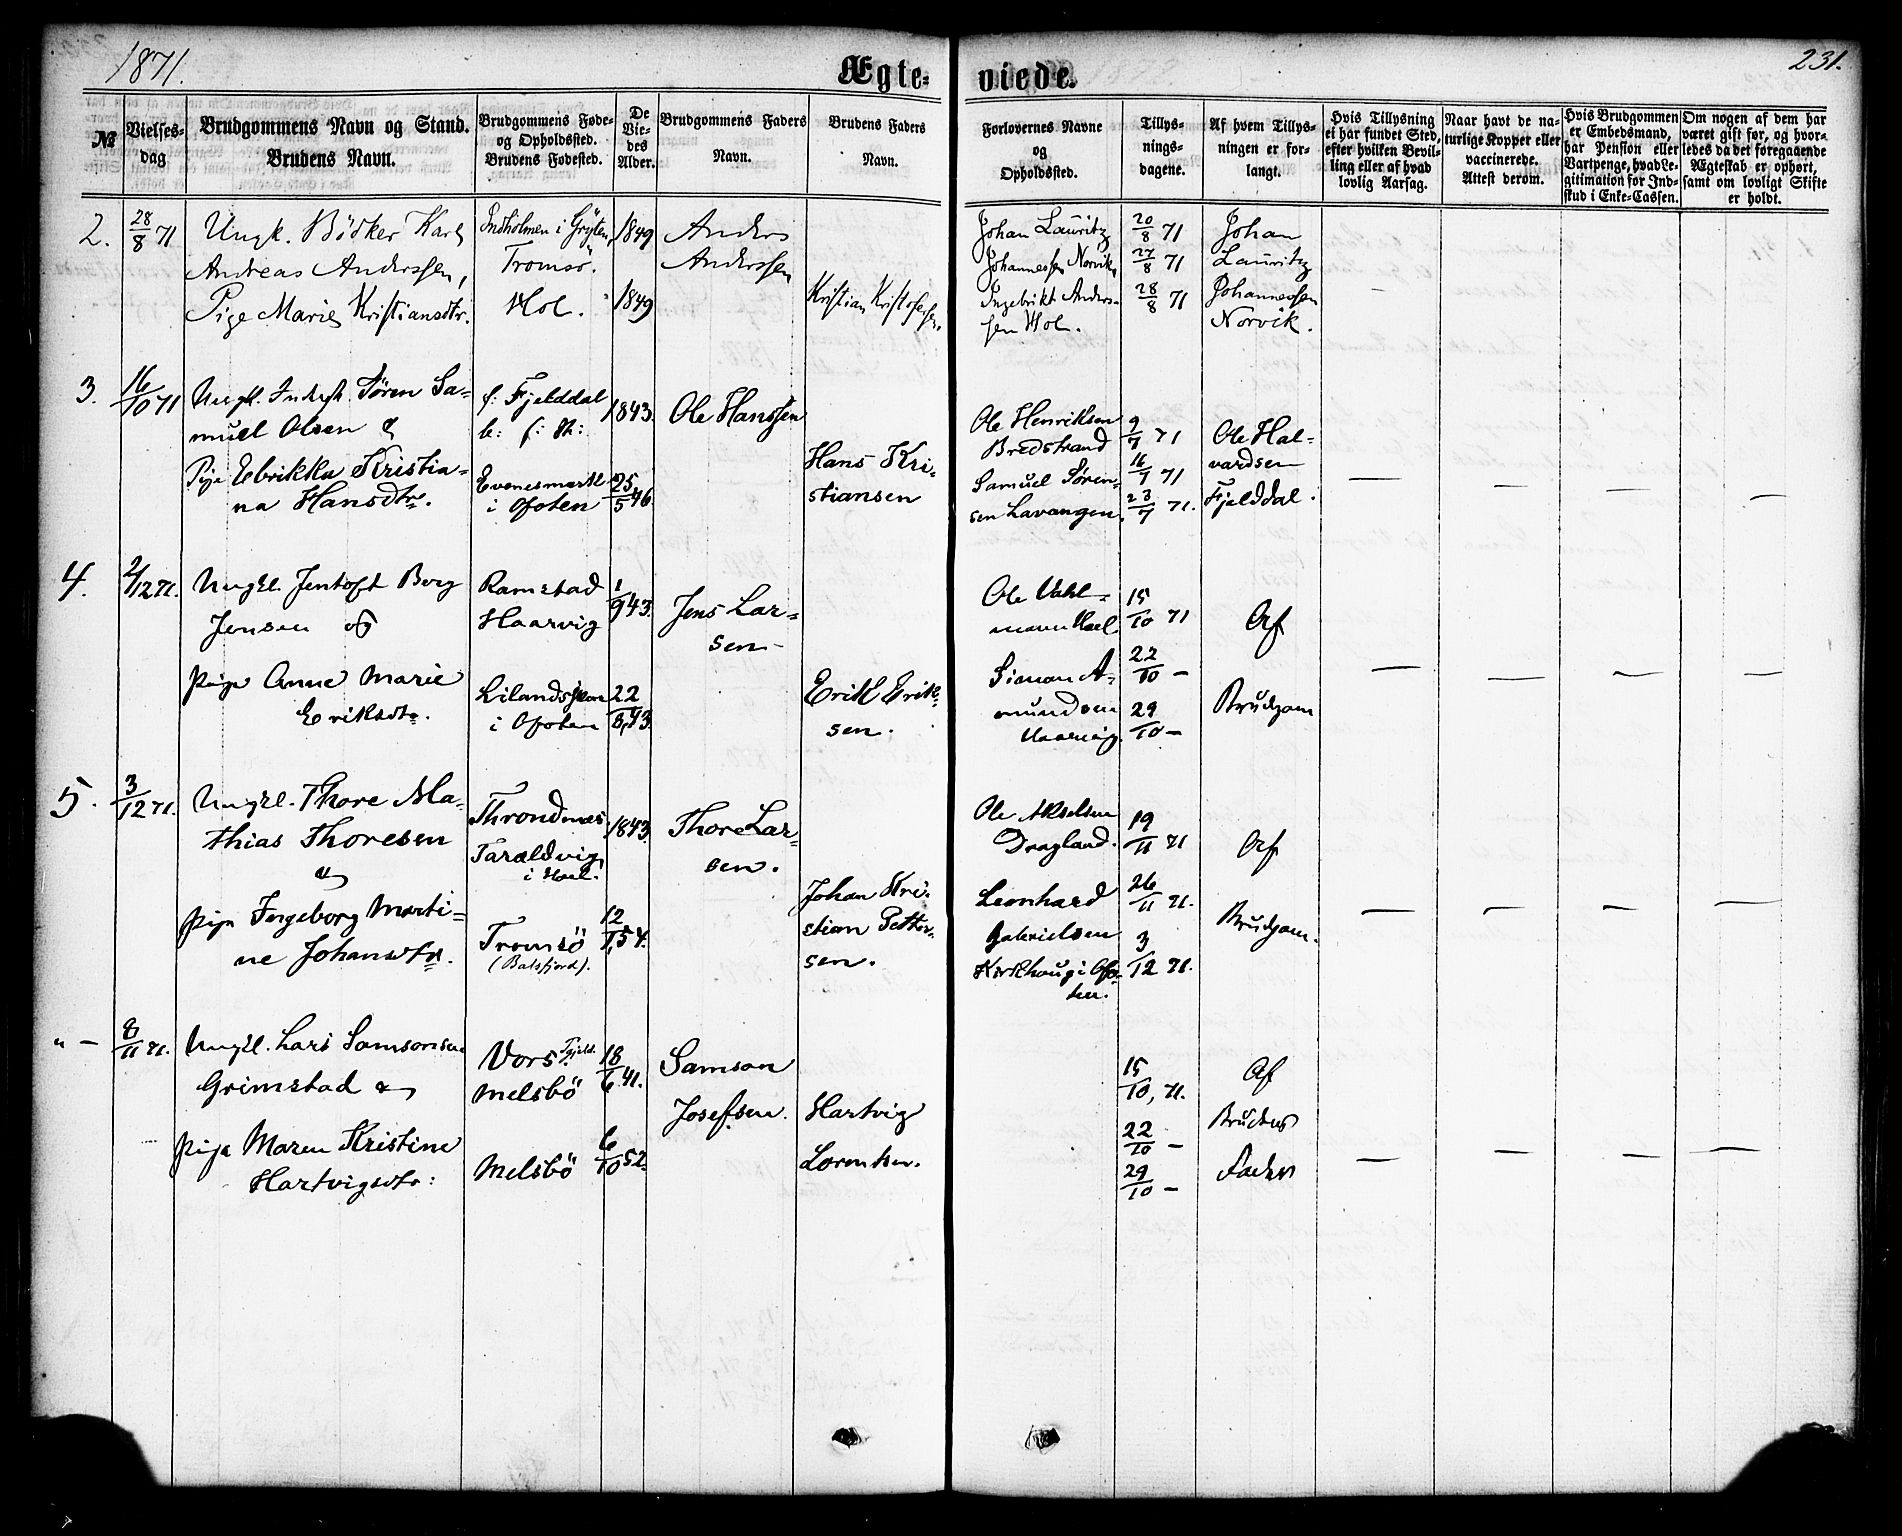 1871.
Ægte-
viede.
231.
№
Vielses-
dag
Brudgommens Navn og Stand.
Brudens Navn.
Brudgommens Føde-
og Opholdssted.
Brudens Fødested.
De
Vie-
des
Alder.
Brudgommens Faders
Navn.
Brudens Faders
Navn.
Forlovernes Navne
og
Opholdssted.
Tillys-
nings-
dagene.
Af hvem Tillys-
ningen er for-
langt.
Hvis Tillysning
ei har fundet Sted,
efter hvilken Bevil-
ling eller af hvad
lovlig Aarsag.
Naar havt de na-
turlige Kopper eller
vaccinerede.
Attest derom.
Hvis Brudgommen
er Embedsmand,
har Pension eller
Vartpenge, hvad Le-
gitimation for Ind-
skud i Enke-Cassen.
Om nogen af dem har
været gift før, og hvor-
ledes da det foregaaende
Ægteskab er ophørt,
samt om lovligt Skifte
er holdt.
2.
28/8 71
Ungk. Bödker Karl
Andreas Anderssen,
Pige Marie Kristiansdtr.
Indholmen i Gryten,
Tromsö.
Hol.
1849
1849
Anders
Anderssen
Kristian Kristofersen.
Johan Lauritz
Johannessen Norvik,
Ingebrikt Anders-
sen Hol.
20/8 71
27/8 71
28/8 71
Johan
Lauritz
Johannessen
Norvik.
3.
16/10 71
Ungk. Søren Sa-
muel Olsen &
Pige Ebrikka Kristia-
na Hansdtr.
f: Fjelddal
b: f: St:
Evenesmark
i Ofoten
1843.
25/5 46
Ole Hanssen
Hans Kri-
stiansen
Ole Henriksen
Bredstrand
Samuel Sören-
sen Lavangen.
9/7 71
16/7 71
23/7 71.
Ole Hal-
vardsen
Fjelddal.
4.
2/12 71.
Ungkl. Jentoft Berg
Jensen og
pige Anne Marie
Eriksdtr.
Ramstad
Haarvig
Lilands
i Ofoten
1/9 43.
22/8 43.
Jens Lar-
sen
Erik Erik-
sen.
Ole Vahl-
mann Hoel
Simon A-
mundsen
Haarvig.
15/10 71
22/10 -
29/10 -
Af
Brudgom
5.
3/12 71.
Ungkl. Thore Ma-
thias Thoresen
&
pige Ingeborg Marti-
ne Johansdtr.
Throndnæs
Taraldvig,
i Hoel.
Tromsö
(Balsfjord).
1843.
12/1 54.
Thore Lar-
sen.
Johan Kri-
stian Petter-
sen.
Ole Akselsen
Dragland.
Leonhard
Gabrielsen
Kirkhaug i Ofo-
ten.
19/11 71
26/11 71.
3/12 71.
Af
Brudgom.
" -
8/11 71.
Ungkl. Lars Samsonsen
Grimstad &
pige Maren Kristine
Hartvigsdtr:
Vors Fjeld.
Melsbö
Melsbö
18/6 41.
6/10 52.
Samson
Josefsen.
Hartvig
Lorentsen.
15/10, 71.
22/10 -
29/10 -
Af
Brudens
Fader